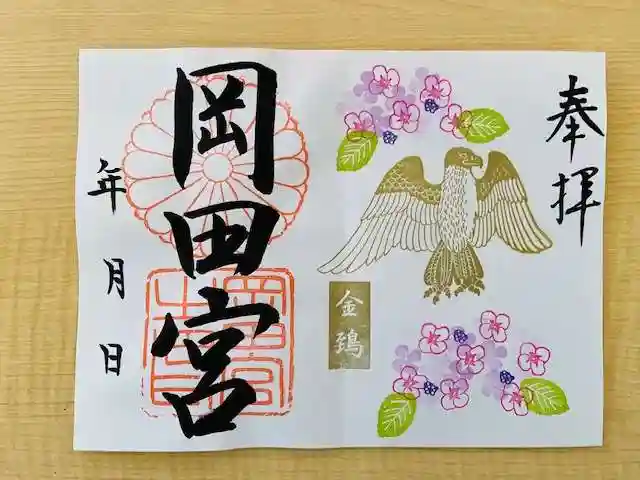 奉拝
金鵄
岡田宮
年
月
日